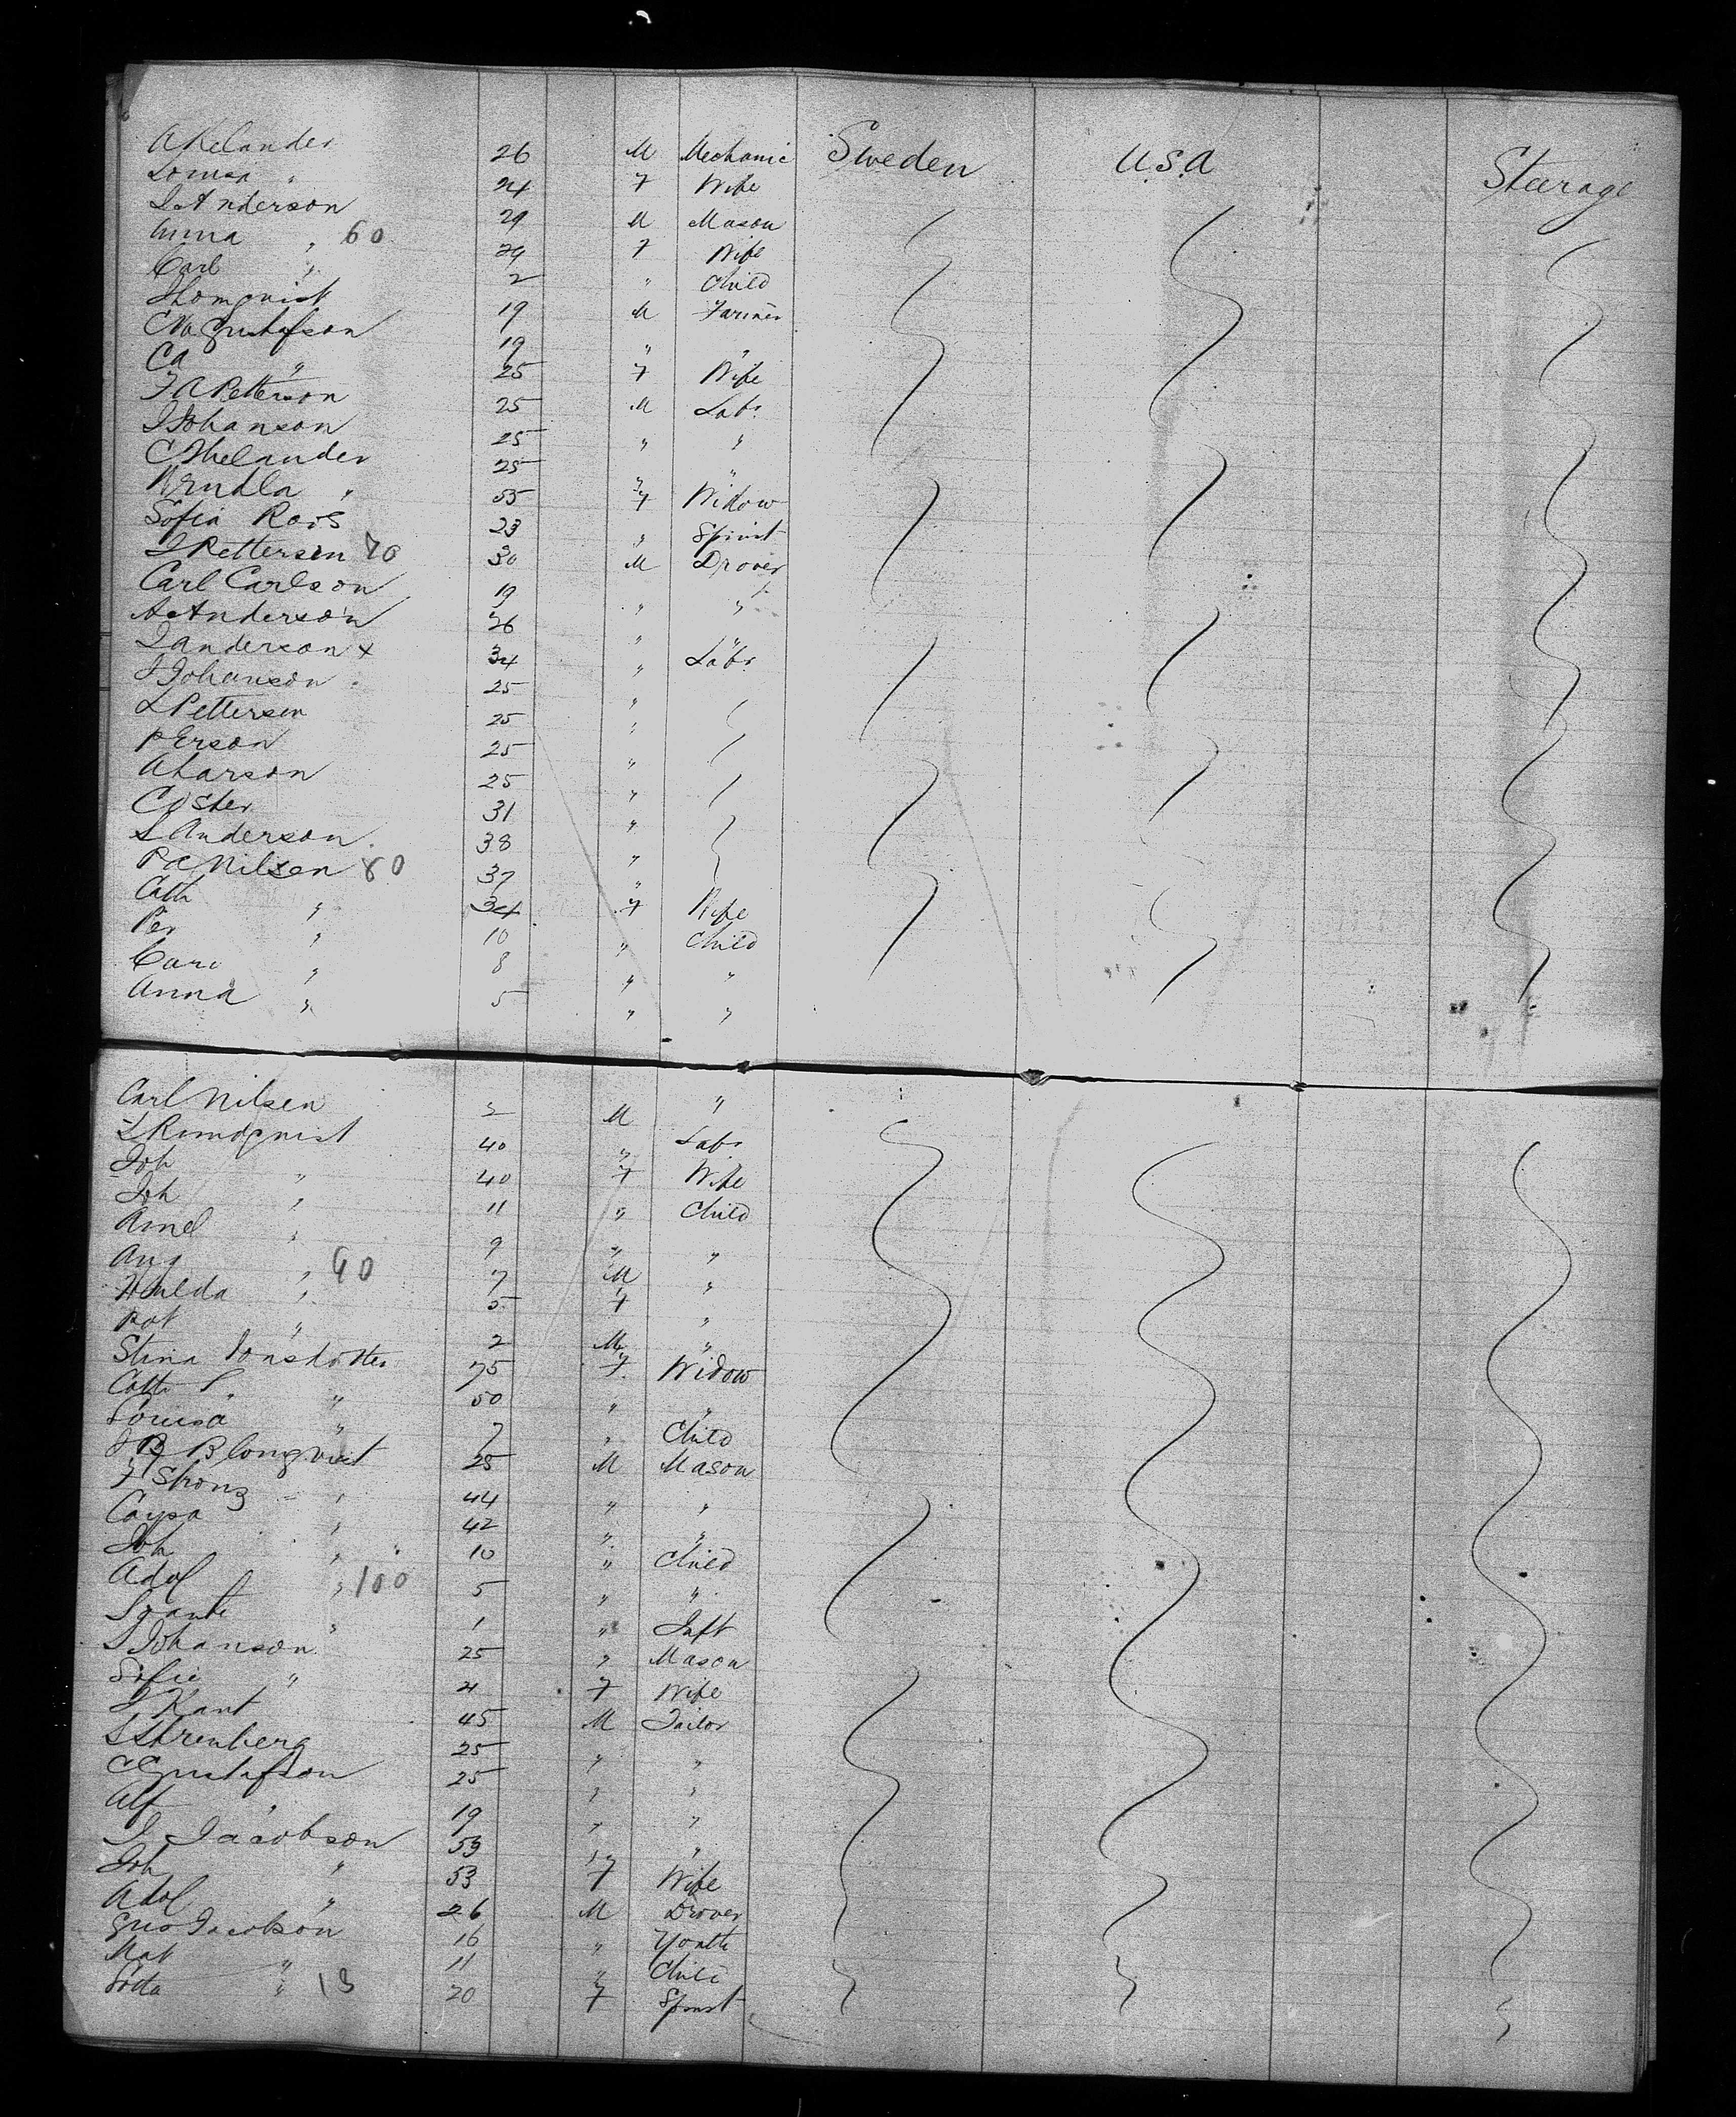 A Kelander 26 M Mechanic Sweden U.S.A Steerage
Louisa " 24 F Wife
J Anderson 29 M Mason
Anna " 60 24 F Wife
Carl " 2 " Child
Holmqvist 19 M Farmer
Gustafson 19 " "
Ca " 25 F Wife
F A Petterson 25 M Labr
J Johanson 25 " "
C Thelander 25 " "
" 55 F Widow
Sofia Roos 23 " Spinst
J Petterson 70 30 M Drover
Carl Carlson 19 " "
A Anderson 26 " "
J Anderson x 34 " Labr
J Johanson 25 "
L Petterson 25 "
P Erson 25 "
A Larson 25 "
C Oster 31 "
L Anderson 38 "
P C Nilsen 80 37 "
Cath " 34 F Wife
Per " 10 " Child
Carl " 8 " "
Anna " 5 " "
Carl Nilsen 2 M "
40 " Labr
Joh " 40 F Wife
Joh " 11 " Child
Amel " 9 " "
Aug " 90 7 M "
Hulda " 5 F "
Rot " 2 M "
Stina Jonsdotter 75 F Widow
Cath " 50 " "
Louisa " 7 " Child
Blomqvist 28 M Mason
F Strong 44 " "
Caysa " 42 " "
Joh " 10 " Child
Adol " 100 5 " "
Svante " 1 " Inft
J Johanson 25 " Mason
Sofia " 21 F Wife
J Kant 45 M Tailor
25 " "
C Gustafson 25 " "
Alf " 19 " "
J Jacobson 53 " "
Joh " 53 F Wife
Adol " 26 M Drover
Gus Jacobson 16 " Youth
Mat " 11 " Child
" 13 20 F Spinst